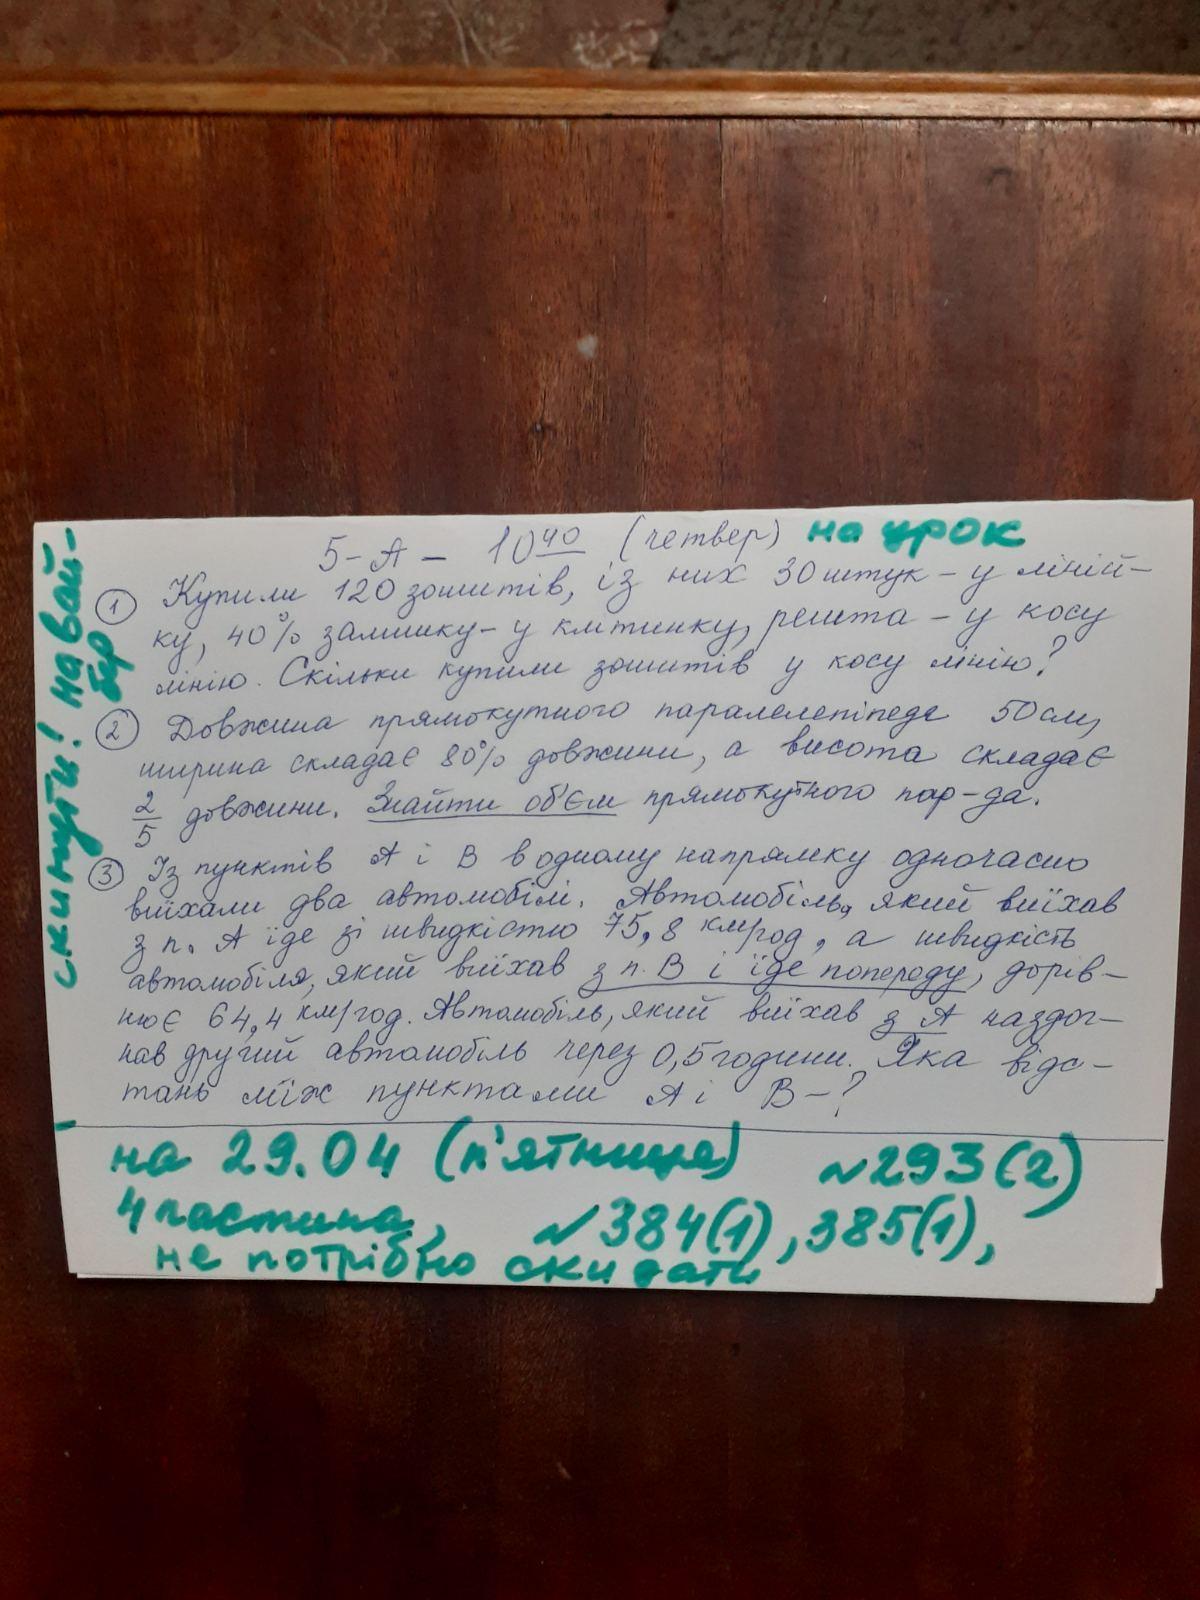 5-А - 10 40 (четвер) на урок
① Купили 120 зошитів, із них 30 штук - у ліній-
ку, 40% залишку - у клітинку, решта - у косу
лінію. Скільки купили зошитів у косу лінію?
② Довжина прямокутного паралелепіпеда 50 см,
ширина складає 80% довжини, а висота складає
2/5 довжини. Знайти об'єм прямокутного пар-да.
③ Із пунктів А і В в одному напрямку одночасно
виїхали два автомобілі. Автомобіль, який виїхав
з п. А їде зі швидкістю 75,8 км/год, а швидкість
автомобіля, який виїхав з п. В і їде попереду, дорів-
нює 64,4 км/год. Автомобіль, який виїхав з А наздог-
нав другий автомобіль через 0,5 години. Яка відс-
тань між пунктами А і В - ?
скинути! на вай-
бер
на 29.04 (п'ятниця) №293(2)
4 частина, №384(1), 385(1),
не потрібно скидати